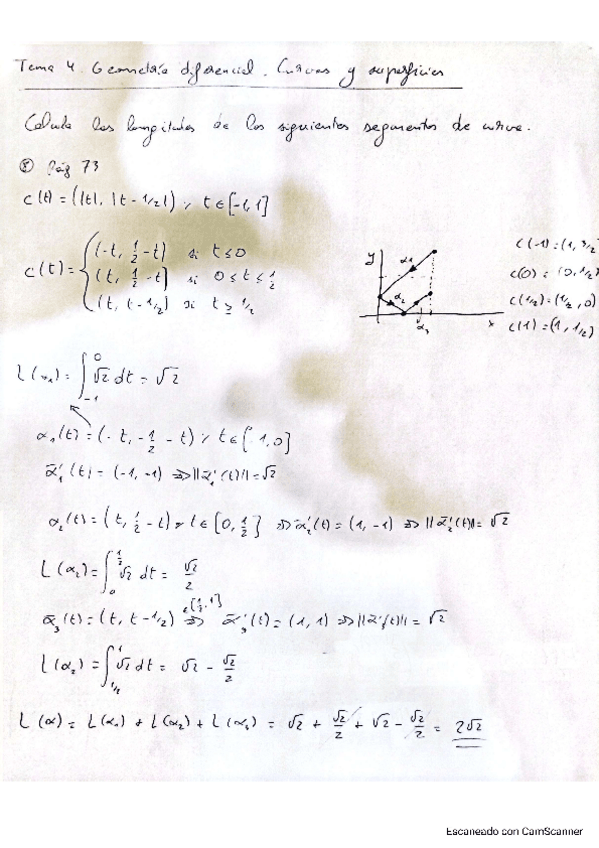 Tema 4. Geometría diferencial. Curvas y superficies
Calcula las longitudes de los siguientes segmentos de curva.
⑧ Pág 73
c(t) = (|t|, |t - 1/2|) ; t ∈ [-1, 1]
c(t) = { (-t, 1/2 - t) si t ≤ 0
(t, 1/2 - t) si 0 ≤ t ≤ 1/2
(t, t - 1/2) si t ≥ 1/2
y
α1
α2
α3
x
c(-1) = (1, 3/2)
c(0) = (0, 1/2)
c(1/2) = (1/2, 0)
c(1) = (1, 1/2)
L(α1) = ∫_{-1}^{0} √2 dt = √2
α1(t) = (-t, -1/2 - t) ; t ∈ [-1, 0]
α1'(t) = (-1, -1) => ||α1'(t)|| = √2
α2(t) = (t, 1/2 - t) ; t ∈ [0, 1/2] => α2'(t) = (1, -1) => ||α2'(t)|| = √2
L(α2) = ∫_{0}^{1/2} √2 dt = √2/2
α3(t) = (t, t - 1/2) t∈[1/2, 1] => α3'(t) = (1, 1) => ||α3'(t)|| = √2
L(α2) = ∫_{1/2}^{1} √2 dt = √2 - √2/2
L(α) = L(α1) + L(α2) + L(α3) = √2 + √2/2 + √2 - √2/2 = 2√2
Escaneado con CamScanner